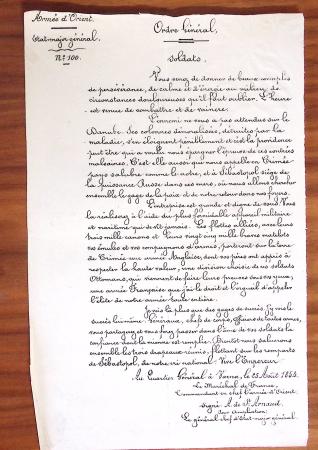 Armée d'Orient.
Etat-major général.
N° 100.
Ordre Général.
Soldats.
Vous venez de donner de beaux exemples
de persévérance, de calme et d'énergie au milieu de
circonstances douloureuses qu'il faut oublier. L'heure
est venue de combattre et de vaincre.
L'ennemi ne nous a pas attendus sur le
Danube. Ses colonnes démoralisées, détruites par la
maladie, s'en éloignent péniblement et c'est la providence
peut être qui a voulu nous épargner l'épreuve de ces contrées
malsaines. C'est elle aussi qui nous appelle en Crimée,
pays salubre comme le nôtre, et à Sébastopol siège de
la puissance Russe dans ces mers, où nous allons chercher
ensemble le gage de la paix et de notre retour dans nos foyers.
L'entreprise est grande et digne de vous. Vous
la réaliserez à l'aide du plus formidable appareil militaire
et maritime qui se vit jamais. Les flottes alliées, avec leurs
trois mille canons et leurs vingt cinq mille braves matelots
vos émules et vos compagnons d'armes, porteront sur la terre
de Crimée une armée Anglaise, dont vos pères ont appris à
respecter la haute valeur, une division choisie de ces soldats
Ottomans, qui viennent de faire leurs preuves sous vos yeux,
une armée Française que j'ai le droit et l'orgueil d'appeler
l'élite de notre armée toute entière.
Je vois là plus que des gages de succès, j'y vois le
succès lui-même. Généraux, chefs de corps, Officiers de toutes armes,
vous partagerez et vous ferez passer dans l'âme de vos soldats la
confiance dont la mienne est remplie. Bientôt nous saluerons
ensemble les trois drapeaux réunis, flottant sur les remparts
de Sébastopol, de notre cri national : Vive l'Empereur !
Au Quartier Général à Varna, le 25 Août 1854.
Le Maréchal de France,
Commandant en chef l'armée d'Orient.
Signé : A. de St Arnaud.
Pour ampliation :
Le général chef d'Etat-major général.